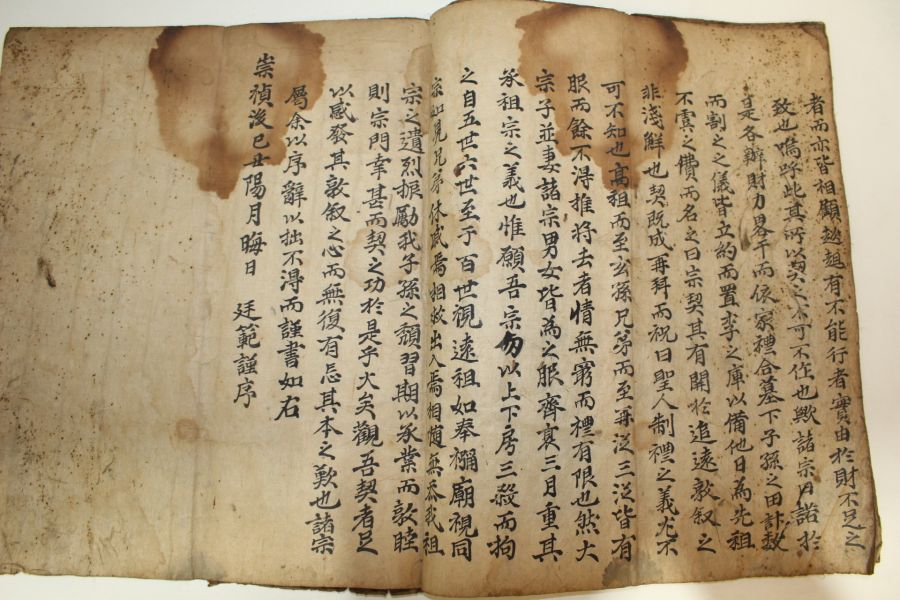 者而亦皆相顧趑趄有不能行者實由於財不足之
致也嗚呼此其所以契之不可不作也歟諸宗曰諾於
是各辦財力畧干而依家禮合墓下子孫之田計數
而割之之儀皆立約而置李之庫以備他日爲先祖
不虞之費而名之曰宗契其有關於追遠敦叙之
非淺鮮也契旣成再拜而祝曰聖人制禮之義尤不
可不知也高祖而至玄孫兄弟而至再從三從皆有
服而餘不得推將去者情無窮而禮有限也然大
宗子並妻諸宗男女皆爲之服齊衰三月重其
承祖宗之義也惟願吾宗勿以上下房三殺而拘
之自五世六世至于百世視遠祖如奉禰廟視同
宗如見兄弟休戚焉相救出入焉相隨無忝我祖
宗之遺烈振勵我子孫之頹習期以承業而敦睦
則宗門幸甚而契之功於是乎大矣觀吾契者足
以感發其敦叙之心而無復有忘其本之歎也諸宗
屬余以序辭以拙不得而謹書如右
崇禎後己丑陽月晦日 廷範謹序